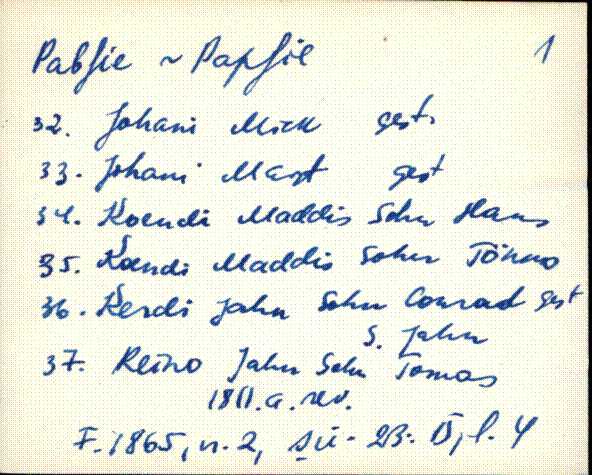 Pabsie ~ Papsie 1
32. Johani Mick gest.
33. Johani Mart gest
34. Koendi Maddis Sohn Hans
35. Koendi Maddis Sohn Tönno
36. Kerdi Jahn Sohn Conrad gest
S. Jahn
37. Reino Jahn Sohn Tomas
1811. a. rev.
F. 1865, n. 2, sü. 23. l. 4